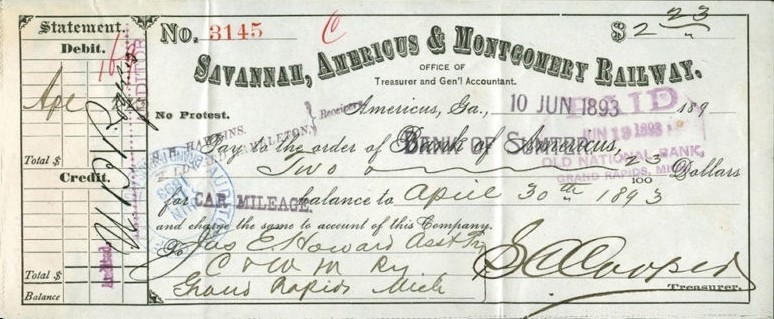 Statement.
Debit.
Apl
Total $
Credit.
Total $
Balance
No. 3145
C
$ 2 23
SAVANNAH, AMERICUS & MONTGOMERY RAILWAY.
OFFICE OF
Treasurer and Gen'l Accountant.
Americus, Ga., 10 JUN 1893 189
No Protest.
Receivers
PAID
JUN 13 1893
OLD NATIONAL BANK,
GRAND RAPIDS, MICH
Pay to the order of Bank of Americus,
BANK OF SUMTER
Two 23/100 Dollars
for CAR MILEAGE. balance to April 30th 1893
and charge the same to account of this Company.
To Jas E Howard Asst Tr
C & W M Ry
Grand Rapids Mich
S A Cooper
Treasurer.
AUDITOR
Audited,